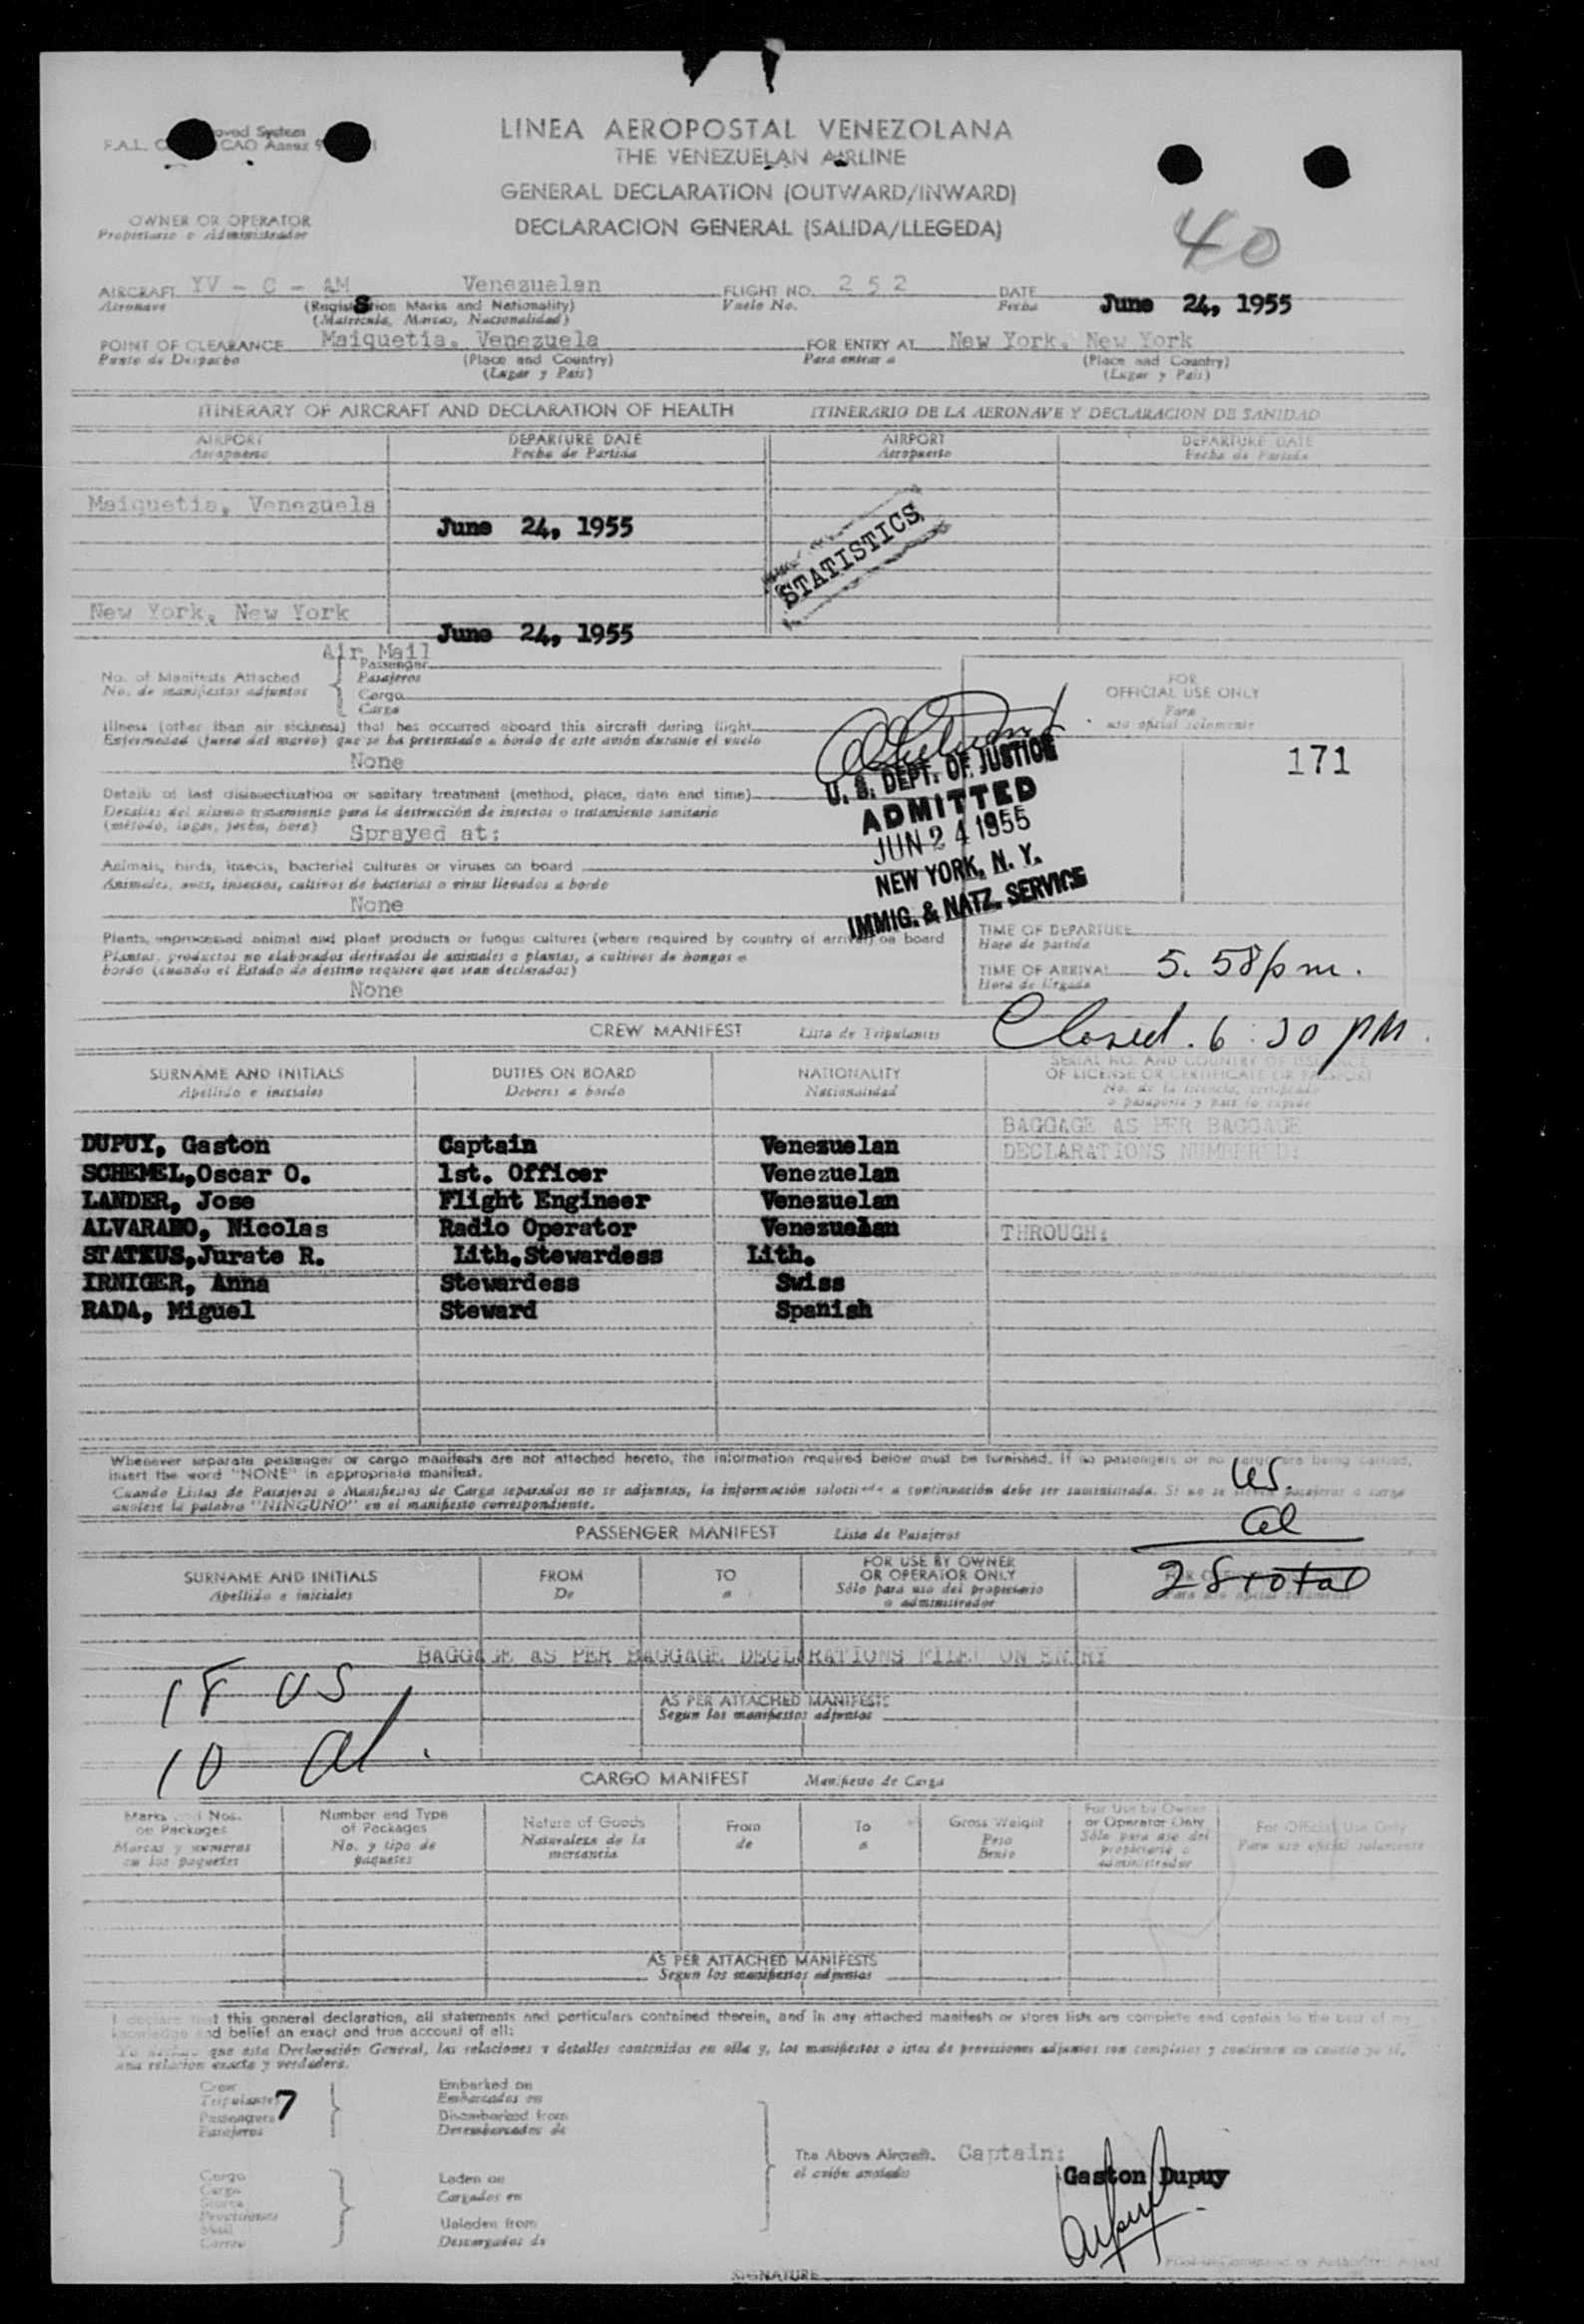 LINEA AEROPOSTAL VENEZOLANA
THE VENEZUELAN AIRLINE
F.A.L. oved System
CAO Annex 9
GENERAL DECLARATION (OUTWARD/INWARD)
DECLARACION GENERAL (SALIDA/LLEGEDA)
OWNER OR OPERATOR
Propietario o Administrador
40
AIRCRAFT YV - C - AM Venezuelan FLIGHT NO. 252 DATE June 24, 1955
Aeronave S (Registration Marks and Nationality) Vuelo No. Fecha
(Matricula, Marcas, Nacionalidad)
POINT OF CLEARANCE Maiquetia, Venezuela FOR ENTRY AT New York, New York
Punto de Despacho (Place and Country) Para entrar a (Place and Country)
(Lugar y Pais) (Lugar y Pais)
ITINERARY OF AIRCRAFT AND DECLARATION OF HEALTH ITINERARIO DE LA AERONAVE Y DECLARACION DE SANIDAD
AIRPORT DEPARTURE DATE AIRPORT DEPARTURE DATE
Aeropuerto Fecha de Partida Aeropuerto Fecha de Partida
Maiquetia, Venezuela
June 24, 1955
STATISTICS
New York, New York
June 24, 1955
Air Mail
Passenger
No. of Manifests Attached Pasajeros
No. de manifiestos adjuntos Cargo
Carga
FOR
OFFICIAL USE ONLY
Para
uso oficial solamente
171
Illness (other than air sickness) that has occurred aboard this aircraft during flight
Enfermedad (fuera del mareo) que se ha presentado a bordo de este avión durante el vuelo
None
U. S. DEPT. OF JUSTICE
ADMITTED
JUN 24 1955
NEW YORK, N. Y.
IMMIG. & NATZ. SERVICE
Details of last disinsectization or sanitary treatment (method, place, date and time)
Detalles del último tratamiento para la destrucción de insectos o tratamiento sanitario
(método, lugar, fecha, hora) Sprayed at:
Animals, birds, insects, bacterial cultures or viruses on board
Animales, aves, insectos, cultivos de bacterias o virus llevados a bordo
None
Plants, unprocessed animal and plant products or fungus cultures (where required by country of arrival) on board
Plantas, productos no elaborados derivados de animales o plantas, o cultivos de hongos a
bordo (cuando el Estado de destino requiere que sean declarados)
None
TIME OF DEPARTURE
Hora de partida
TIME OF ARRIVAL 5.58 pm.
Hora de llegada
Closed. 6:30 PM.
CREW MANIFEST Lista de Tripulantes
SURNAME AND INITIALS DUTIES ON BOARD NATIONALITY SERIAL NO. AND COUNTRY OF ISSUANCE
Apellido e iniciales Deberes a bordo Nacionalidad OF LICENSE OR CERTIFICATE OR PASSPORT
No. de la licencia, certificado
o pasaporte y pais lo expide
BAGGAGE AS PER BAGGAGE
DUPUY, Gaston Captain Venezuelan DECLARATIONS NUMBERED:
SCHEMEL,Oscar O. 1st. Officer Venezuelan
LANDER, Jose Flight Engineer Venezuelan
ALVARADO, Nicolas Radio Operator Venezuelan THROUGH:
STATKUS,Jurate R. Lith.Stewardess Lith.
IRNIGER, Anna Stewardess Swiss
RADA, Miguel Steward Spanish
Whenever separate passenger or cargo manifests are not attached hereto, the information required below must be furnished. If no passengers or no cargo are being carried,
insert the word "NONE" in appropriate manifest.
Cuando Listas de Pasajeros o Manifiestos de Carga separados no se adjuntan, la información a continuación debe ser suministrada. Si no se pasajeros o carga
anótese la palabra "NINGUNO" en el manifiesto correspondiente.
US.
al
28 total
PASSENGER MANIFEST Lista de Pasajeros
SURNAME AND INITIALS FROM TO FOR USE BY OWNER
Apellido e iniciales De a OR OPERATOR ONLY
Sólo para uso del propietario
o administrador
BAGGAGE AS PER BAGGAGE DECLARATIONS FILED ON ENTRY
18 US
AS PER ATTACHED MANIFESTS
Segun los manifiestos adjuntos
10 al.
CARGO MANIFEST Manifiesto de Carga
Marks and Nos. Number and Type Nature of Goods From To Gross Weight For Use by Owner For Official Use Only
on Packages of Packages Naturaleza de la de a Peso or Operator Only Para uso oficial solamente
Marcas y numeros No. y tipo de mercancia Bruto Sólo para uso del
en los paquetes paquetes propietario o
administrador
AS PER ATTACHED MANIFESTS
Segun los manifiestos adjuntos
I declare that this general declaration, all statements and particulars contained therein, and in any attached manifests or stores lists are complete and contain to the best of my
knowledge and belief an exact and true account of all:
que esta Declaración General, las relaciones y detalles contenidos en ella y, los manifiestos o listas de provisiones adjuntos son completos y contienen en cuanto yo sé,
una relacion exacta y verdadera.
Crew Embarked on
Tripulantes 7 Embarcados en
Passengers Disembarked from
Pasajeros Desembarcados de
The Above Aircraft. Captain:
el avión anotado Gaston Dupuy
Cargo Laden on
Carga Cargados en
Stores
Provisiones
Mail Unladen from
Correo Descargados de
Pilot-in-Command or Authorized Agent
SIGNATURE